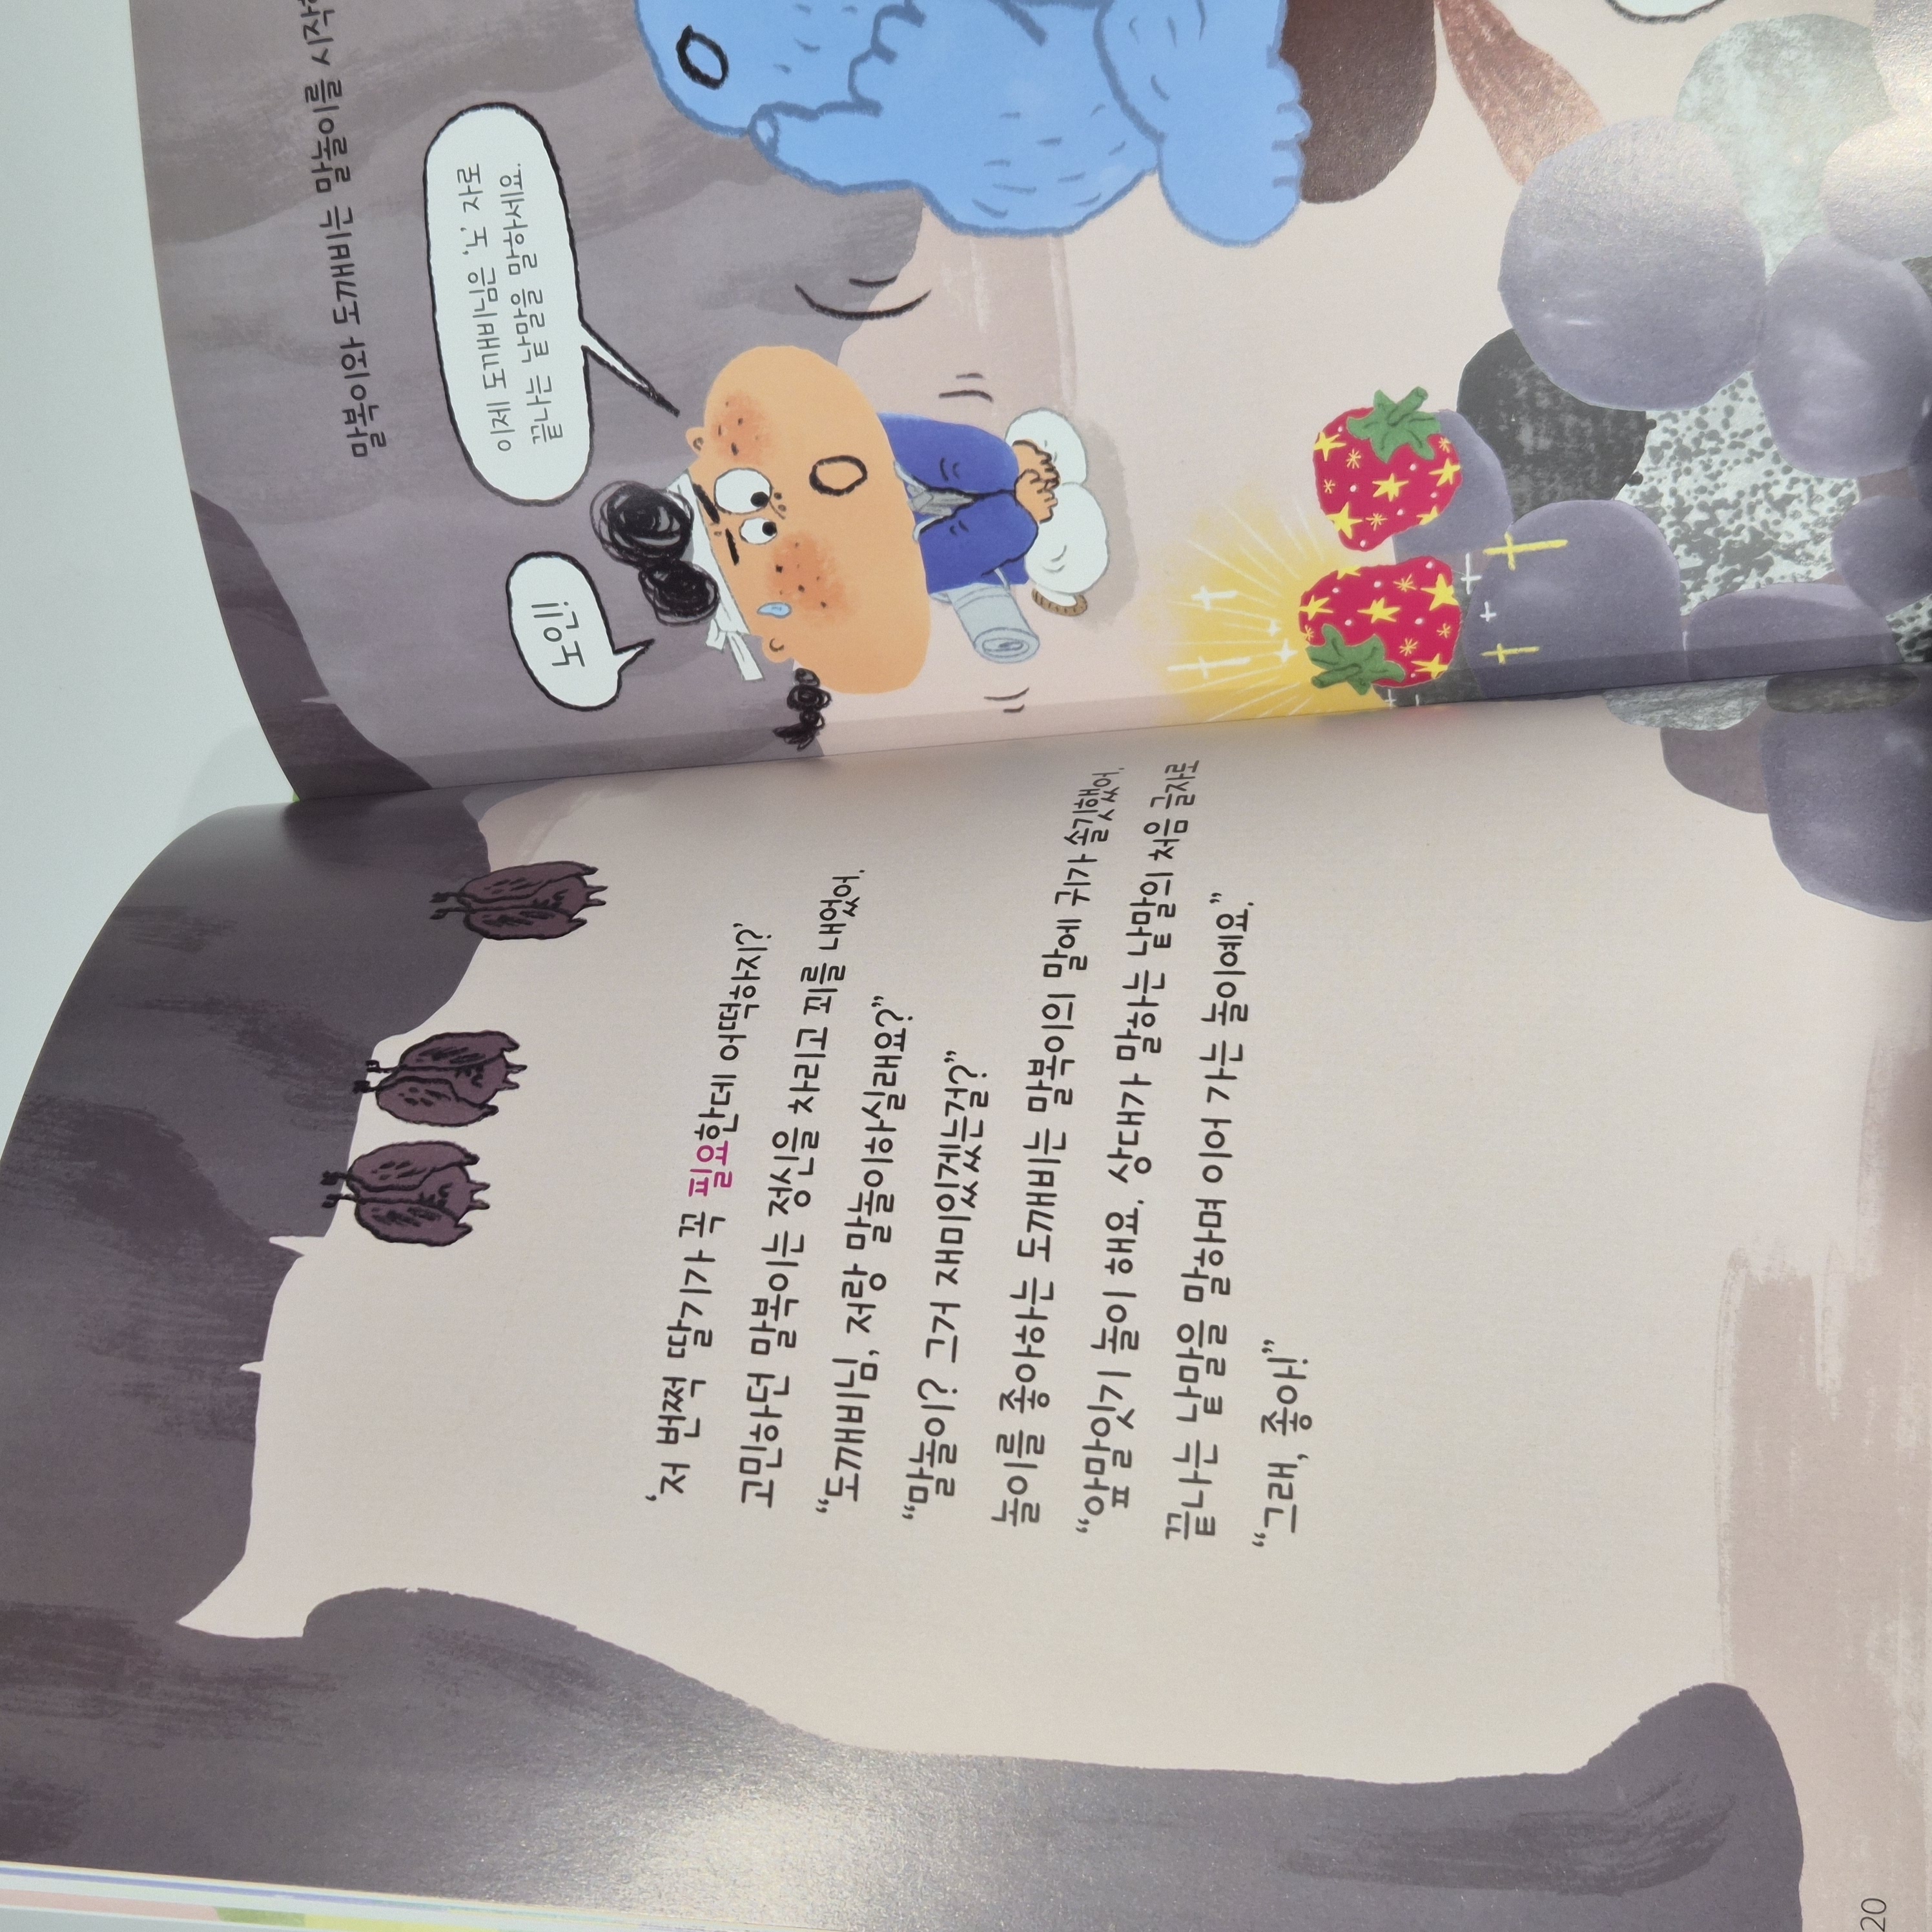 '저 번쩍 딸기가 꼭 필요한데 어떡하지?'
고민하던 말복이는 정신을 차리고 꾀를 내었어.
“도깨비님, 저랑 말놀이하실래요?”
“말놀이? 그거 재미있겠는걸?”
놀이를 좋아하는 도깨비는 말복이의 말에 귀가 솔깃했어.
“앞말잇기 놀이 해요. 상대가 말하는 낱말의 처음 글자로
끝나는 낱말을 말하며 이어 가는 놀이예요.”
“그래, 좋아!”
20
말복이와 도깨비는 말놀이를 시작
노인!
이제 도깨비님은 '노' 자로
끝나는 낱말을 말하세요.